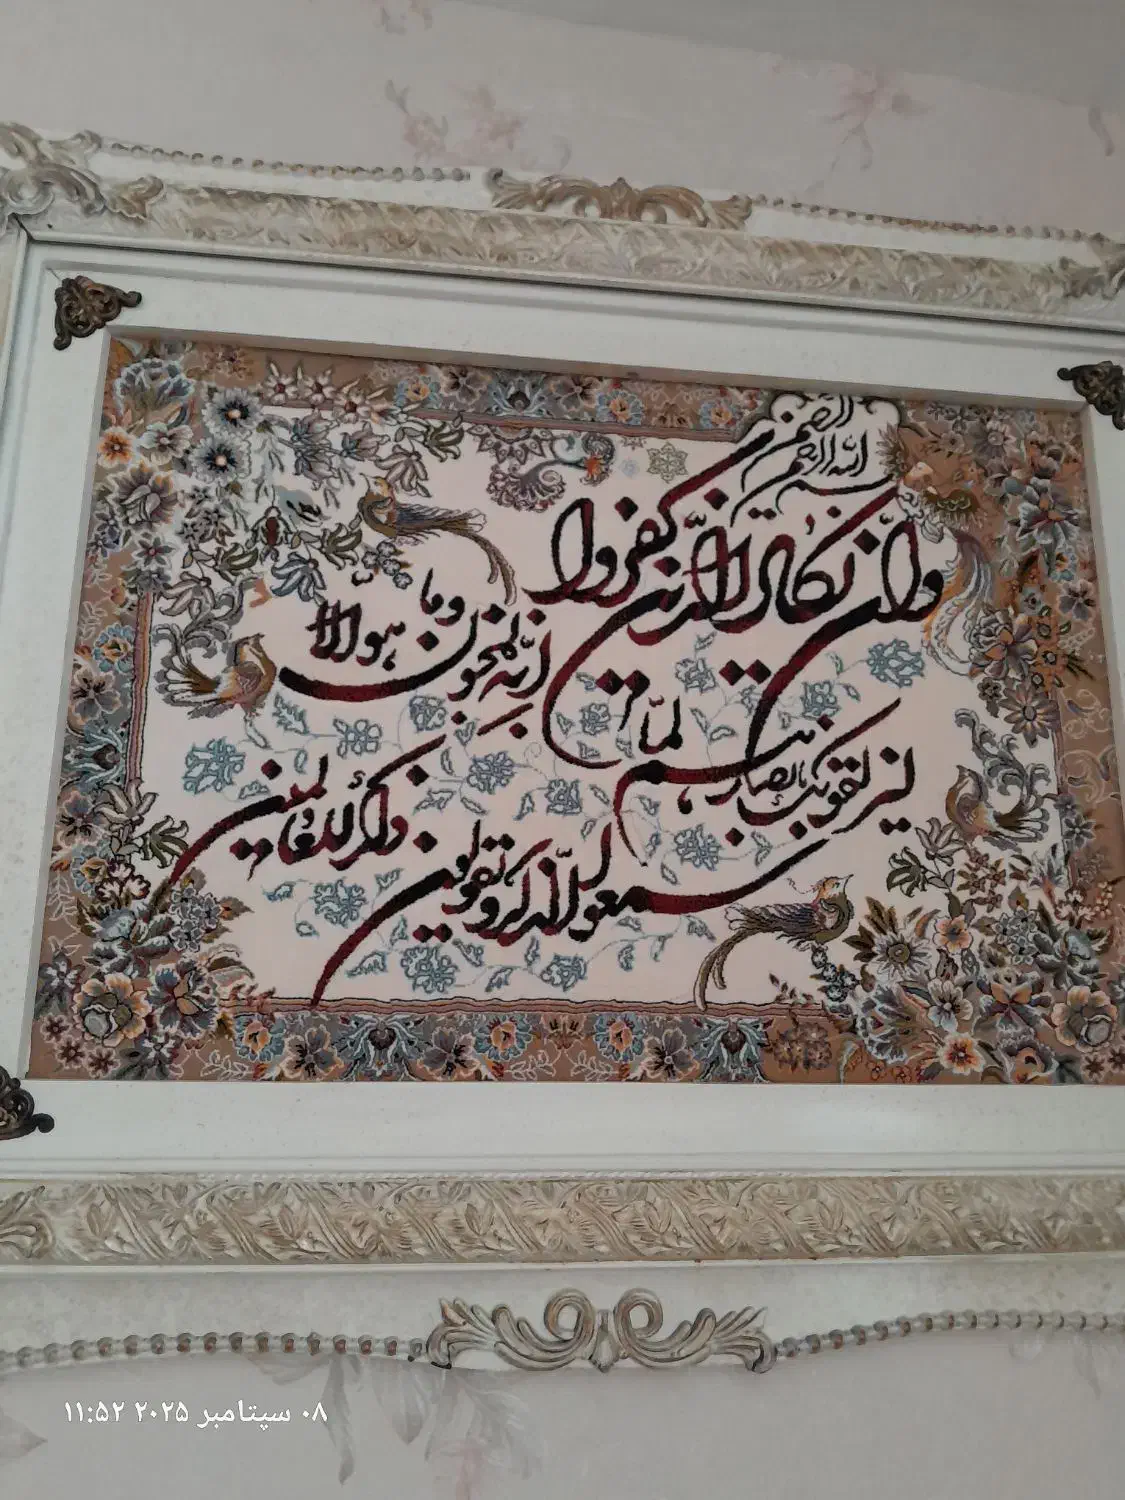 بسم الله الرحمن الرحيم
وان يكاد الذين كفروا
ليزلقونك بابصارهم لما
سمعوا الذكر و يقولون
انه لمجنون وما هو الا
ذكر للعالمين
۰۸ سپتامبر ۲۰۲۵ ۱۱:۵۲